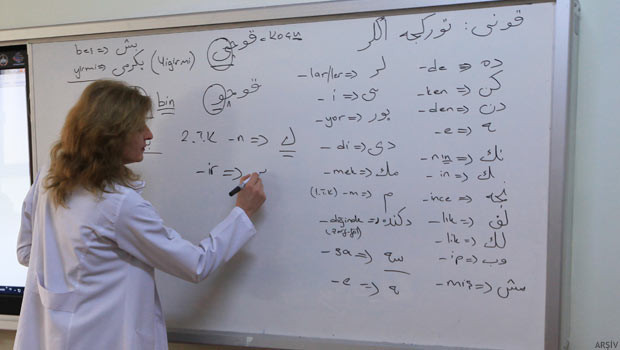 قونى: توركجه أكلر
bes => بش
yirmi => يكرمى (yigirmi)
bin
2.T.K -n => ك
-ir =>
-lar/ler => لر
-i => ى
-yor => يور
-di => دى
-mek => مك
(1.T.K) -m => م
-diğinde =>
-sa => سه
-e => ه
-de => ده
-ken => كن
-den => دن
-e => ه
-nın => نك
-in => ك
-ince => نجه
-lik => لق
-lik => لك
-ip => وب
-miş => مش
ARŞİV